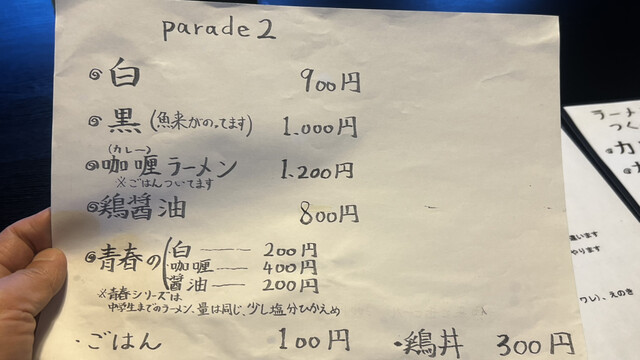 parade2
白 900円
黒 (魚来がのってます) 1.000円
(カレー)
咖喱ラーメン 1.200円
※ごはんついてます
鶏醤油 800円
青春の
白 ―― 200円
咖喱 ―― 400円
醤油 ―― 200円
※青春シリーズは
中学生までのラーメン、量は同じ、少し塩分ひかえめ
・ごはん 100円 ・鶏丼 300円
ラーメ
つく
カ
違います
やります
ワレ)、えのき